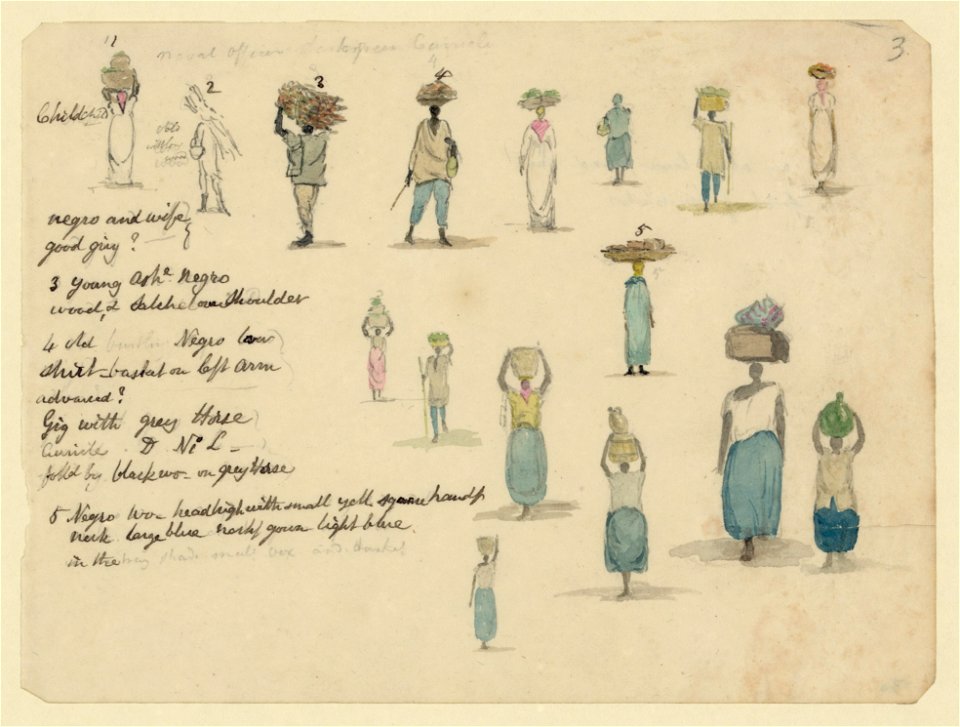 11
naval officer
3.
4
4
2
3
Child
negro and wife
good grey?
3 Young Ashe. Negro
wood, & Satchel over Shoulder
4 old Negro
shirt – basket on left arm
advanced?
Gig with grey Horse
D Ni L –
folld by black wo – on grey Horse
5
5
5 Negro wo – head high with small yell. square handf
neck large blue gown light blue.
in the tray small box and